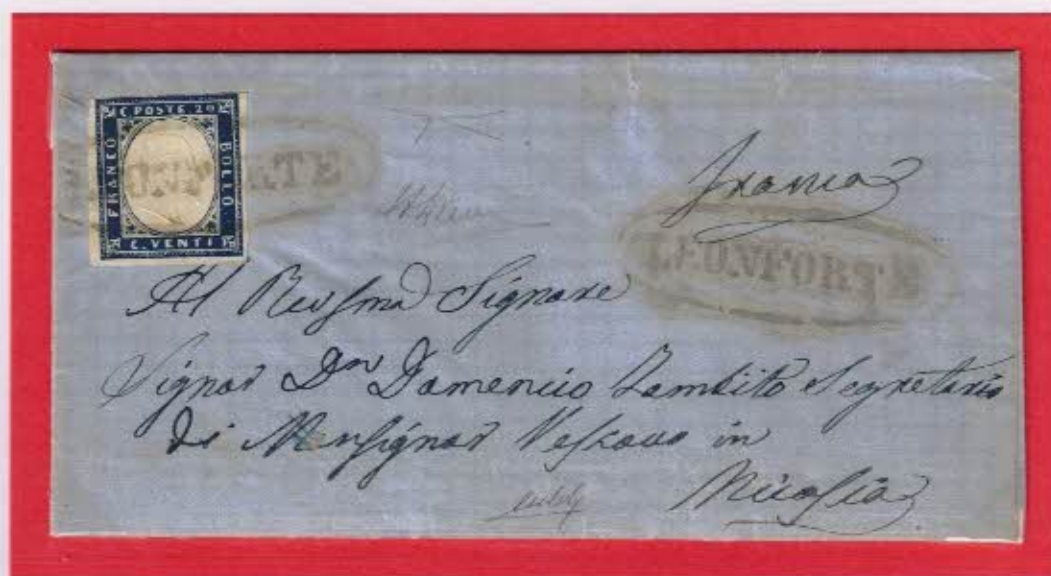 C. POSTE. 20
FRANCO
BOLLO
C. VENTI
franca
LEONFORTE
Al Revsmo Signore
Signor Dn Domenico Zambito Segretario
di Monsignor Vescovo in
Nicosia